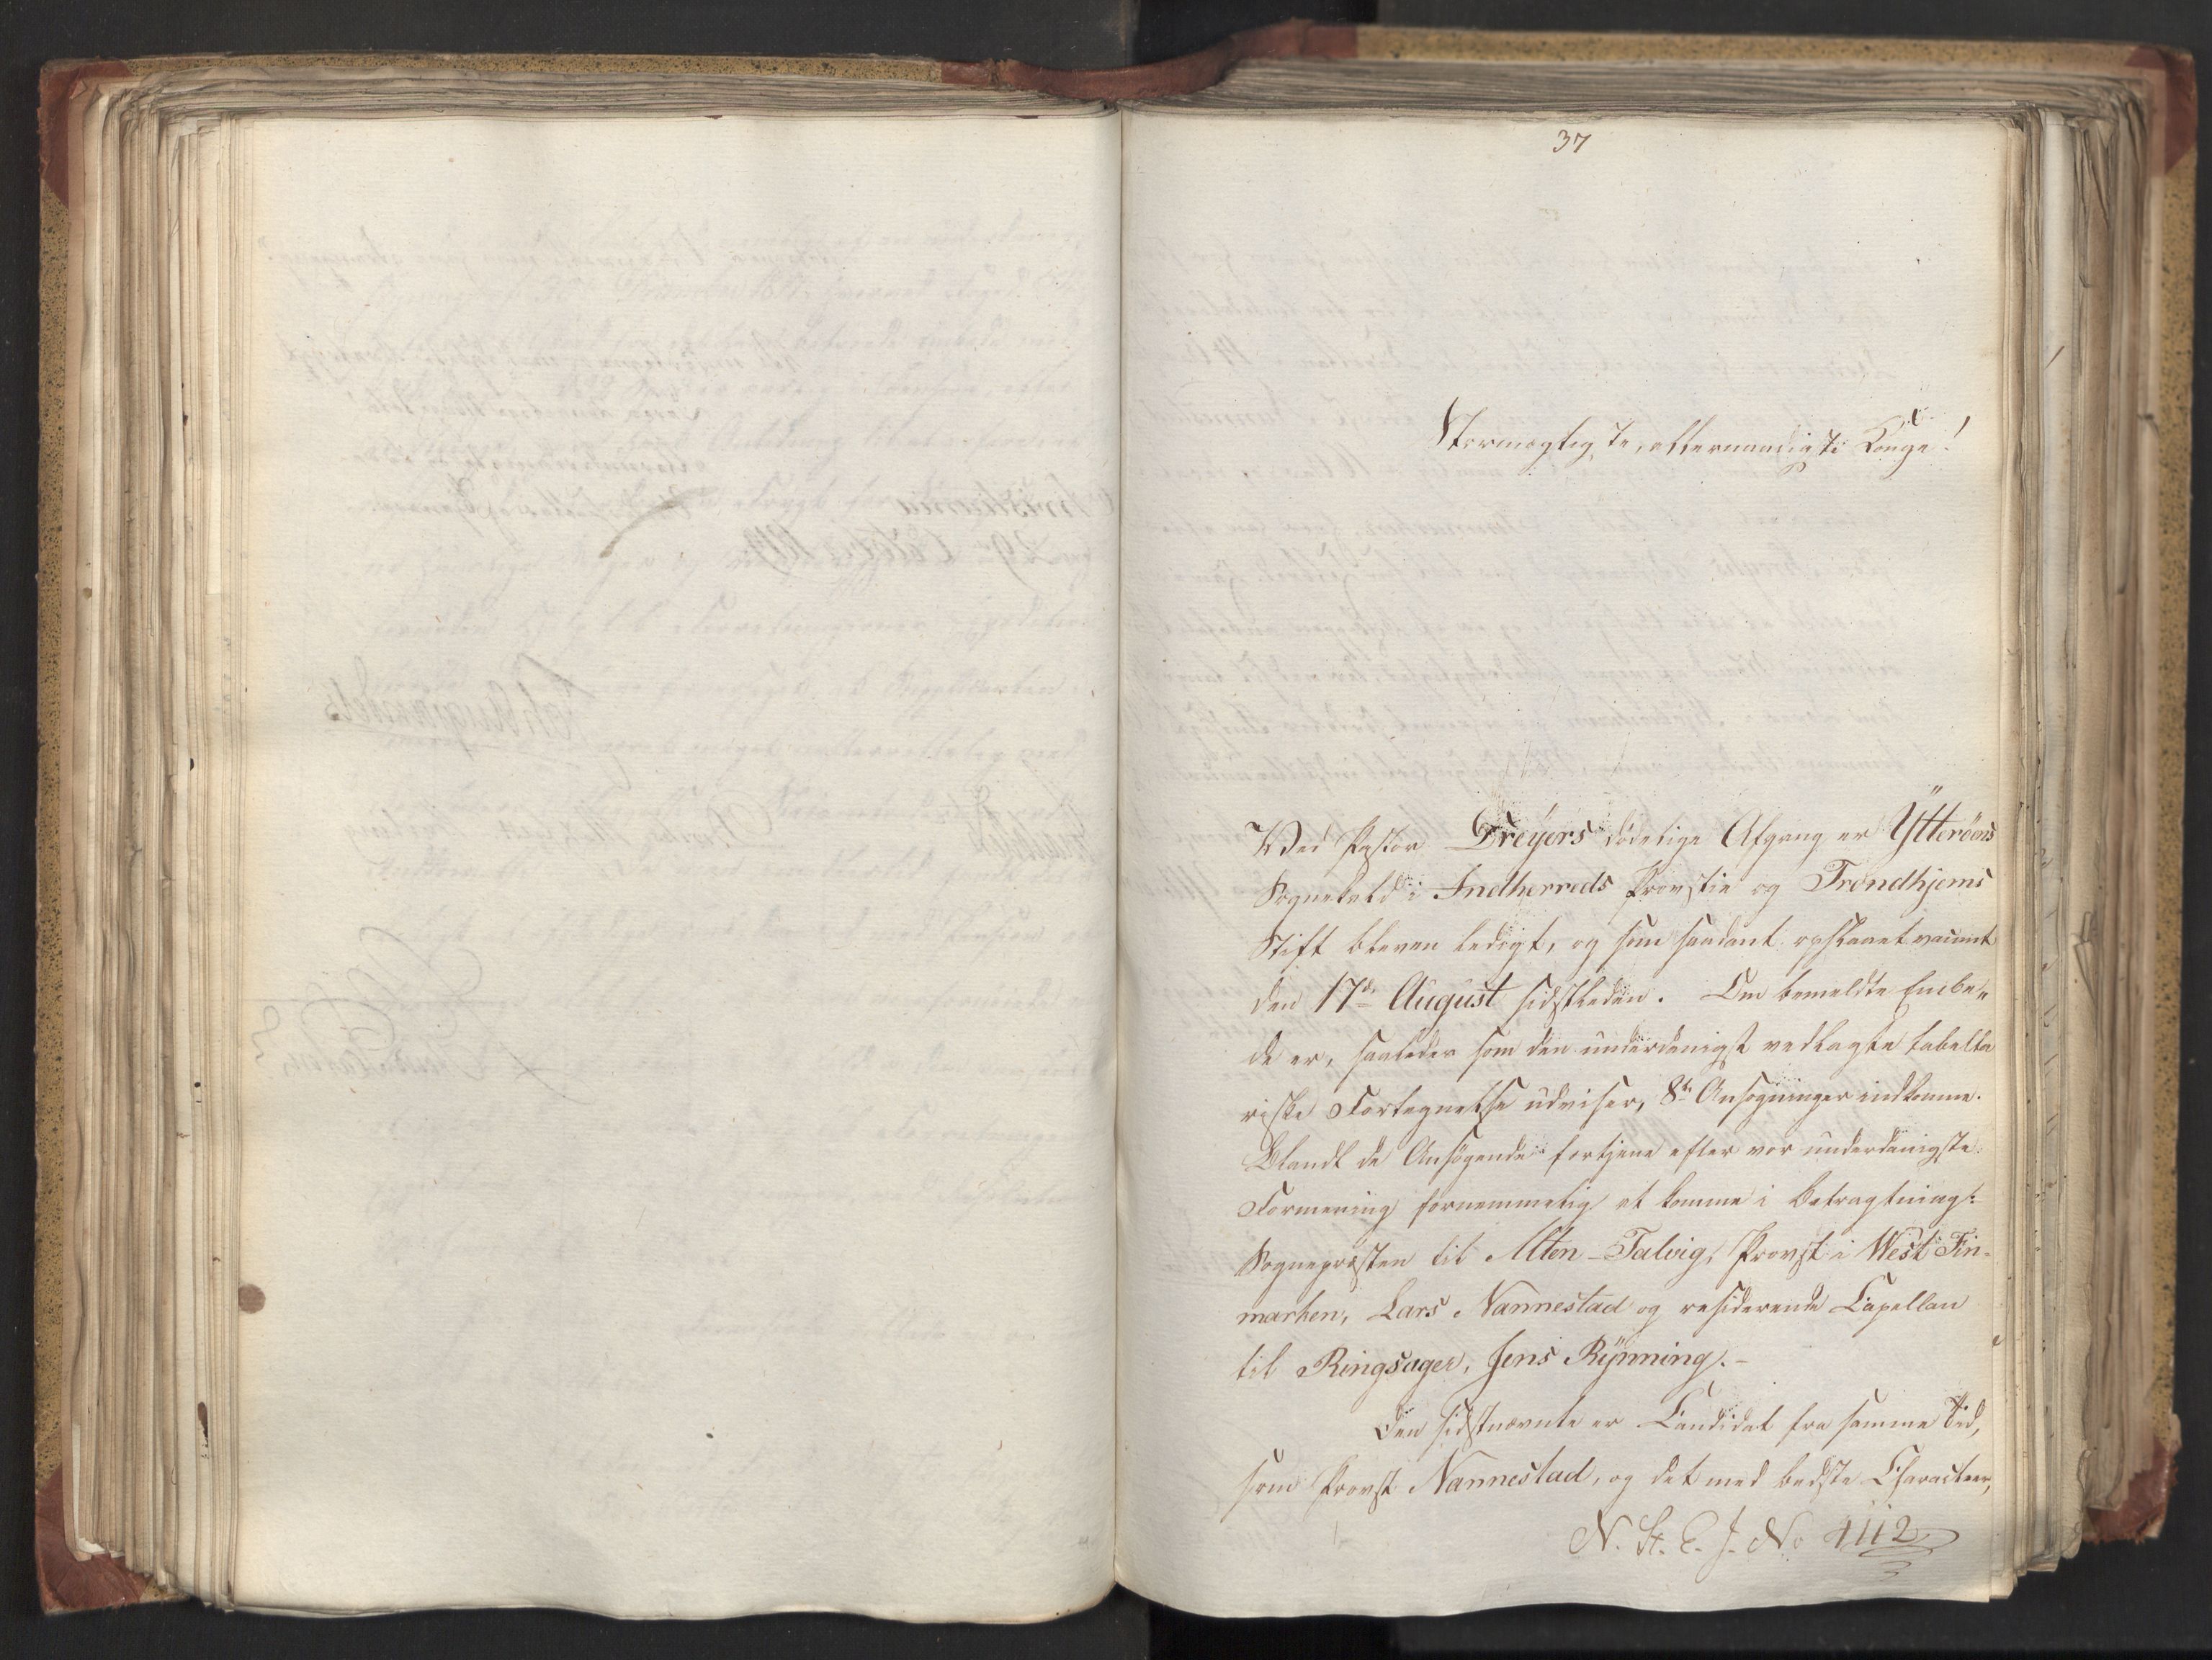 37
Stormægtigste, allernaadigste Konge!
Ved Pastor Dreÿers dödelige Afgang er Ÿtteröens
Sognekald i Indherreds Provstie og Trondhjems
Stift bleven ledigt, og som saadant opslaaet vacant
den 17de August sidstleden. Om bemeldte Embe„
de er, saaledes som den underdanigst vedlagte tabella
riske Fortegnelse udviser, 8te Ansögninger indkomne.
Blandt de Ansögende fortjene efter vor underdanigste
Formening fornemmelig at komme i Betragtning:
Sognepræsten til Alten-Talvig, Provst i West Fin-
marken, Lars Nannestad og residerende Capellan
til Ringsager, Jens Rÿnning.-
Den sidstnævnte er Candidat fra samme Tid,
som Provst Nannestad, og det med bedste Characteer,
N. St. E. J. No 4112